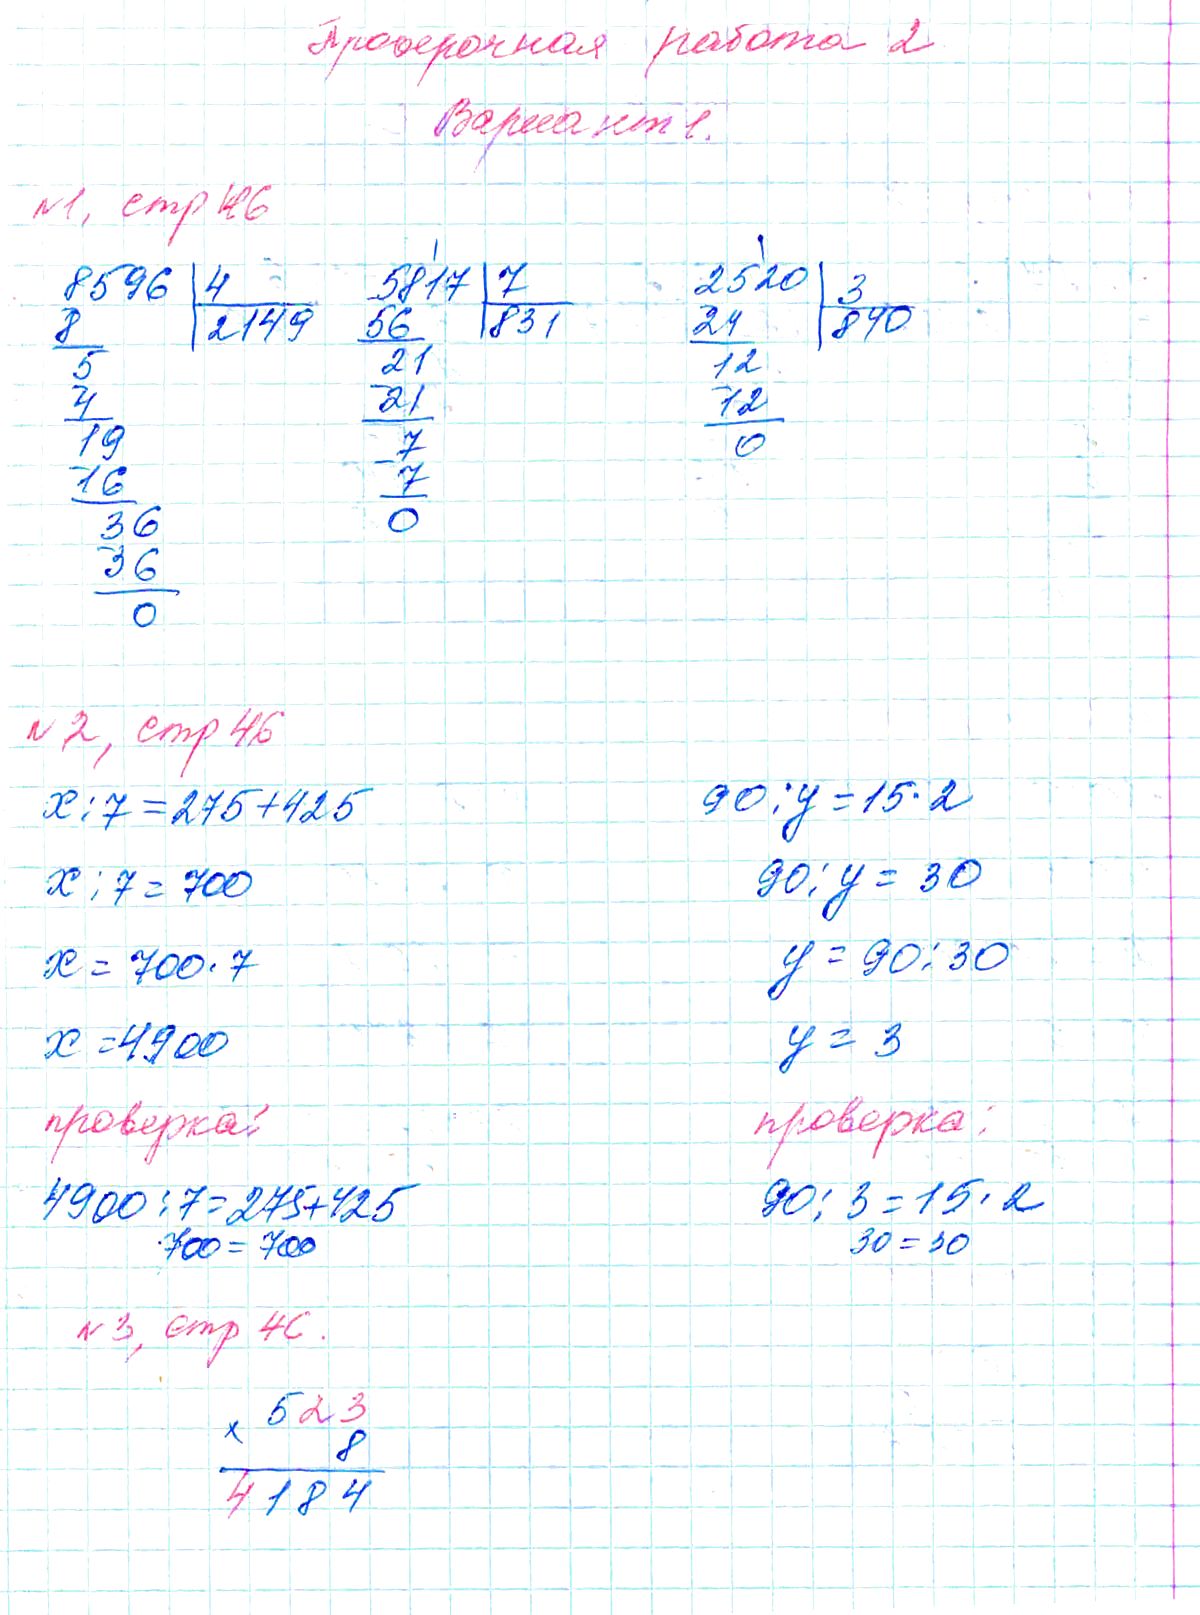 Проверочная работа 2
Вариант 1.
№1, стр 46
8596 | 4
8 | 2149
5
4
19
16
36
36
0
5817 | 7
56 | 831
21
21
7
7
0
2520 | 3
24 | 840
12
12
0
№2, стр 46
x : 7 = 275 + 425
x : 7 = 700
x = 700 · 7
x = 4900
проверка:
4900 : 7 = 275 + 425
700 = 700
90 : y = 15 · 2
90 : y = 30
y = 90 : 30
y = 3
проверка:
90 : 3 = 15 · 2
30 = 30
№3, стр 46.
523
× 8
4184